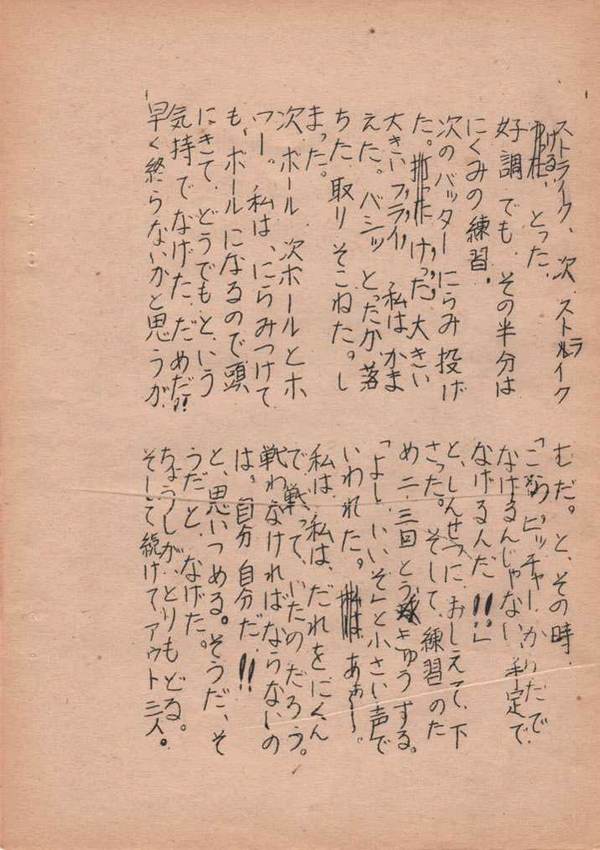 ストライク、次、ストライク
ける、とった、
好調でも、その半分は
にくみの練習。
次のバッターにらみ投げ
た。けった、大きい
大きいフライ、私はかま
えた。バシッとったが、落
ちた取りそこねた。し
まった。
次、ボール、次ボールとホ
ワー。私は、にらみつけて
も、ボールになるので、頭
にきて、どうでもという
気持でなげた、だめだ!!
早く終らないかと思うが、
むだ。と、その時、
「こら、ピッチャー、かただで
なげるんじゃない、手定で
なげるんだ!!」
と、しんせつに、おしえて、下
さった。そして、練習のた
め二、三回とうきゅうする。
「よし、いいぞ」と小さい声で
いわれた。あぁー。
私は、私は、だれをにくん
で、戦って、いたのだろう。
戦わなければならないの
は、自分、自分だ!!
と、思いつめる。そうだ、そ
うだと、なげた。
ちょうしが、とりもどる。
そして続けてアウト三人。